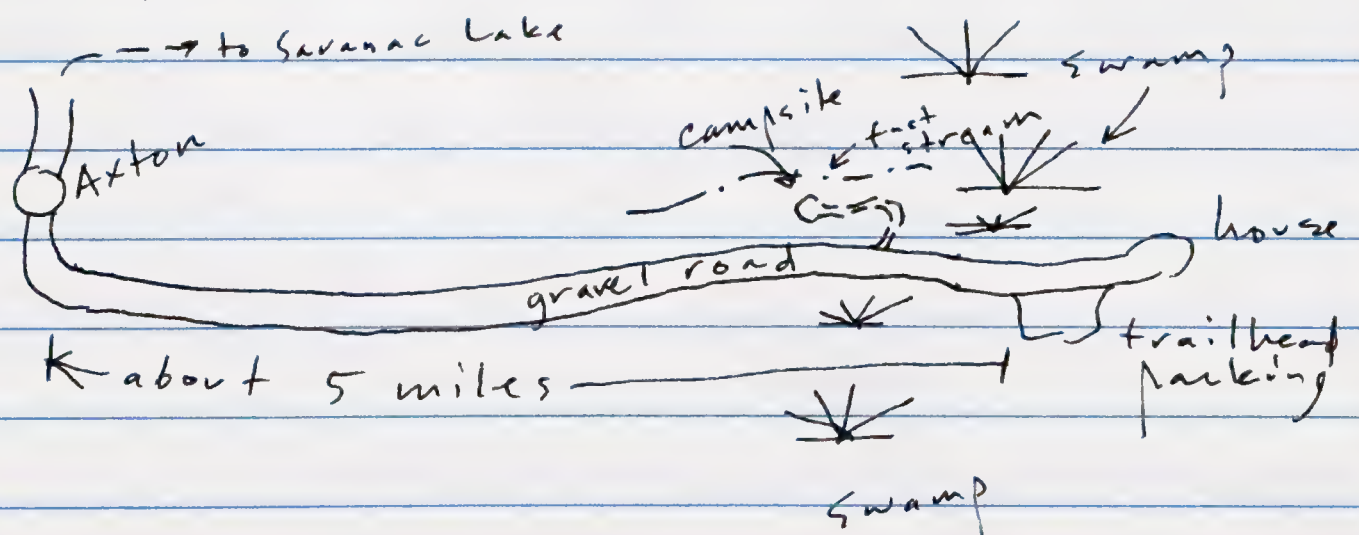 to Saranac Lake
swamp
campsite
fast
stream
Axton
house
gravel road
trailhead
parking
about 5 miles
swamp